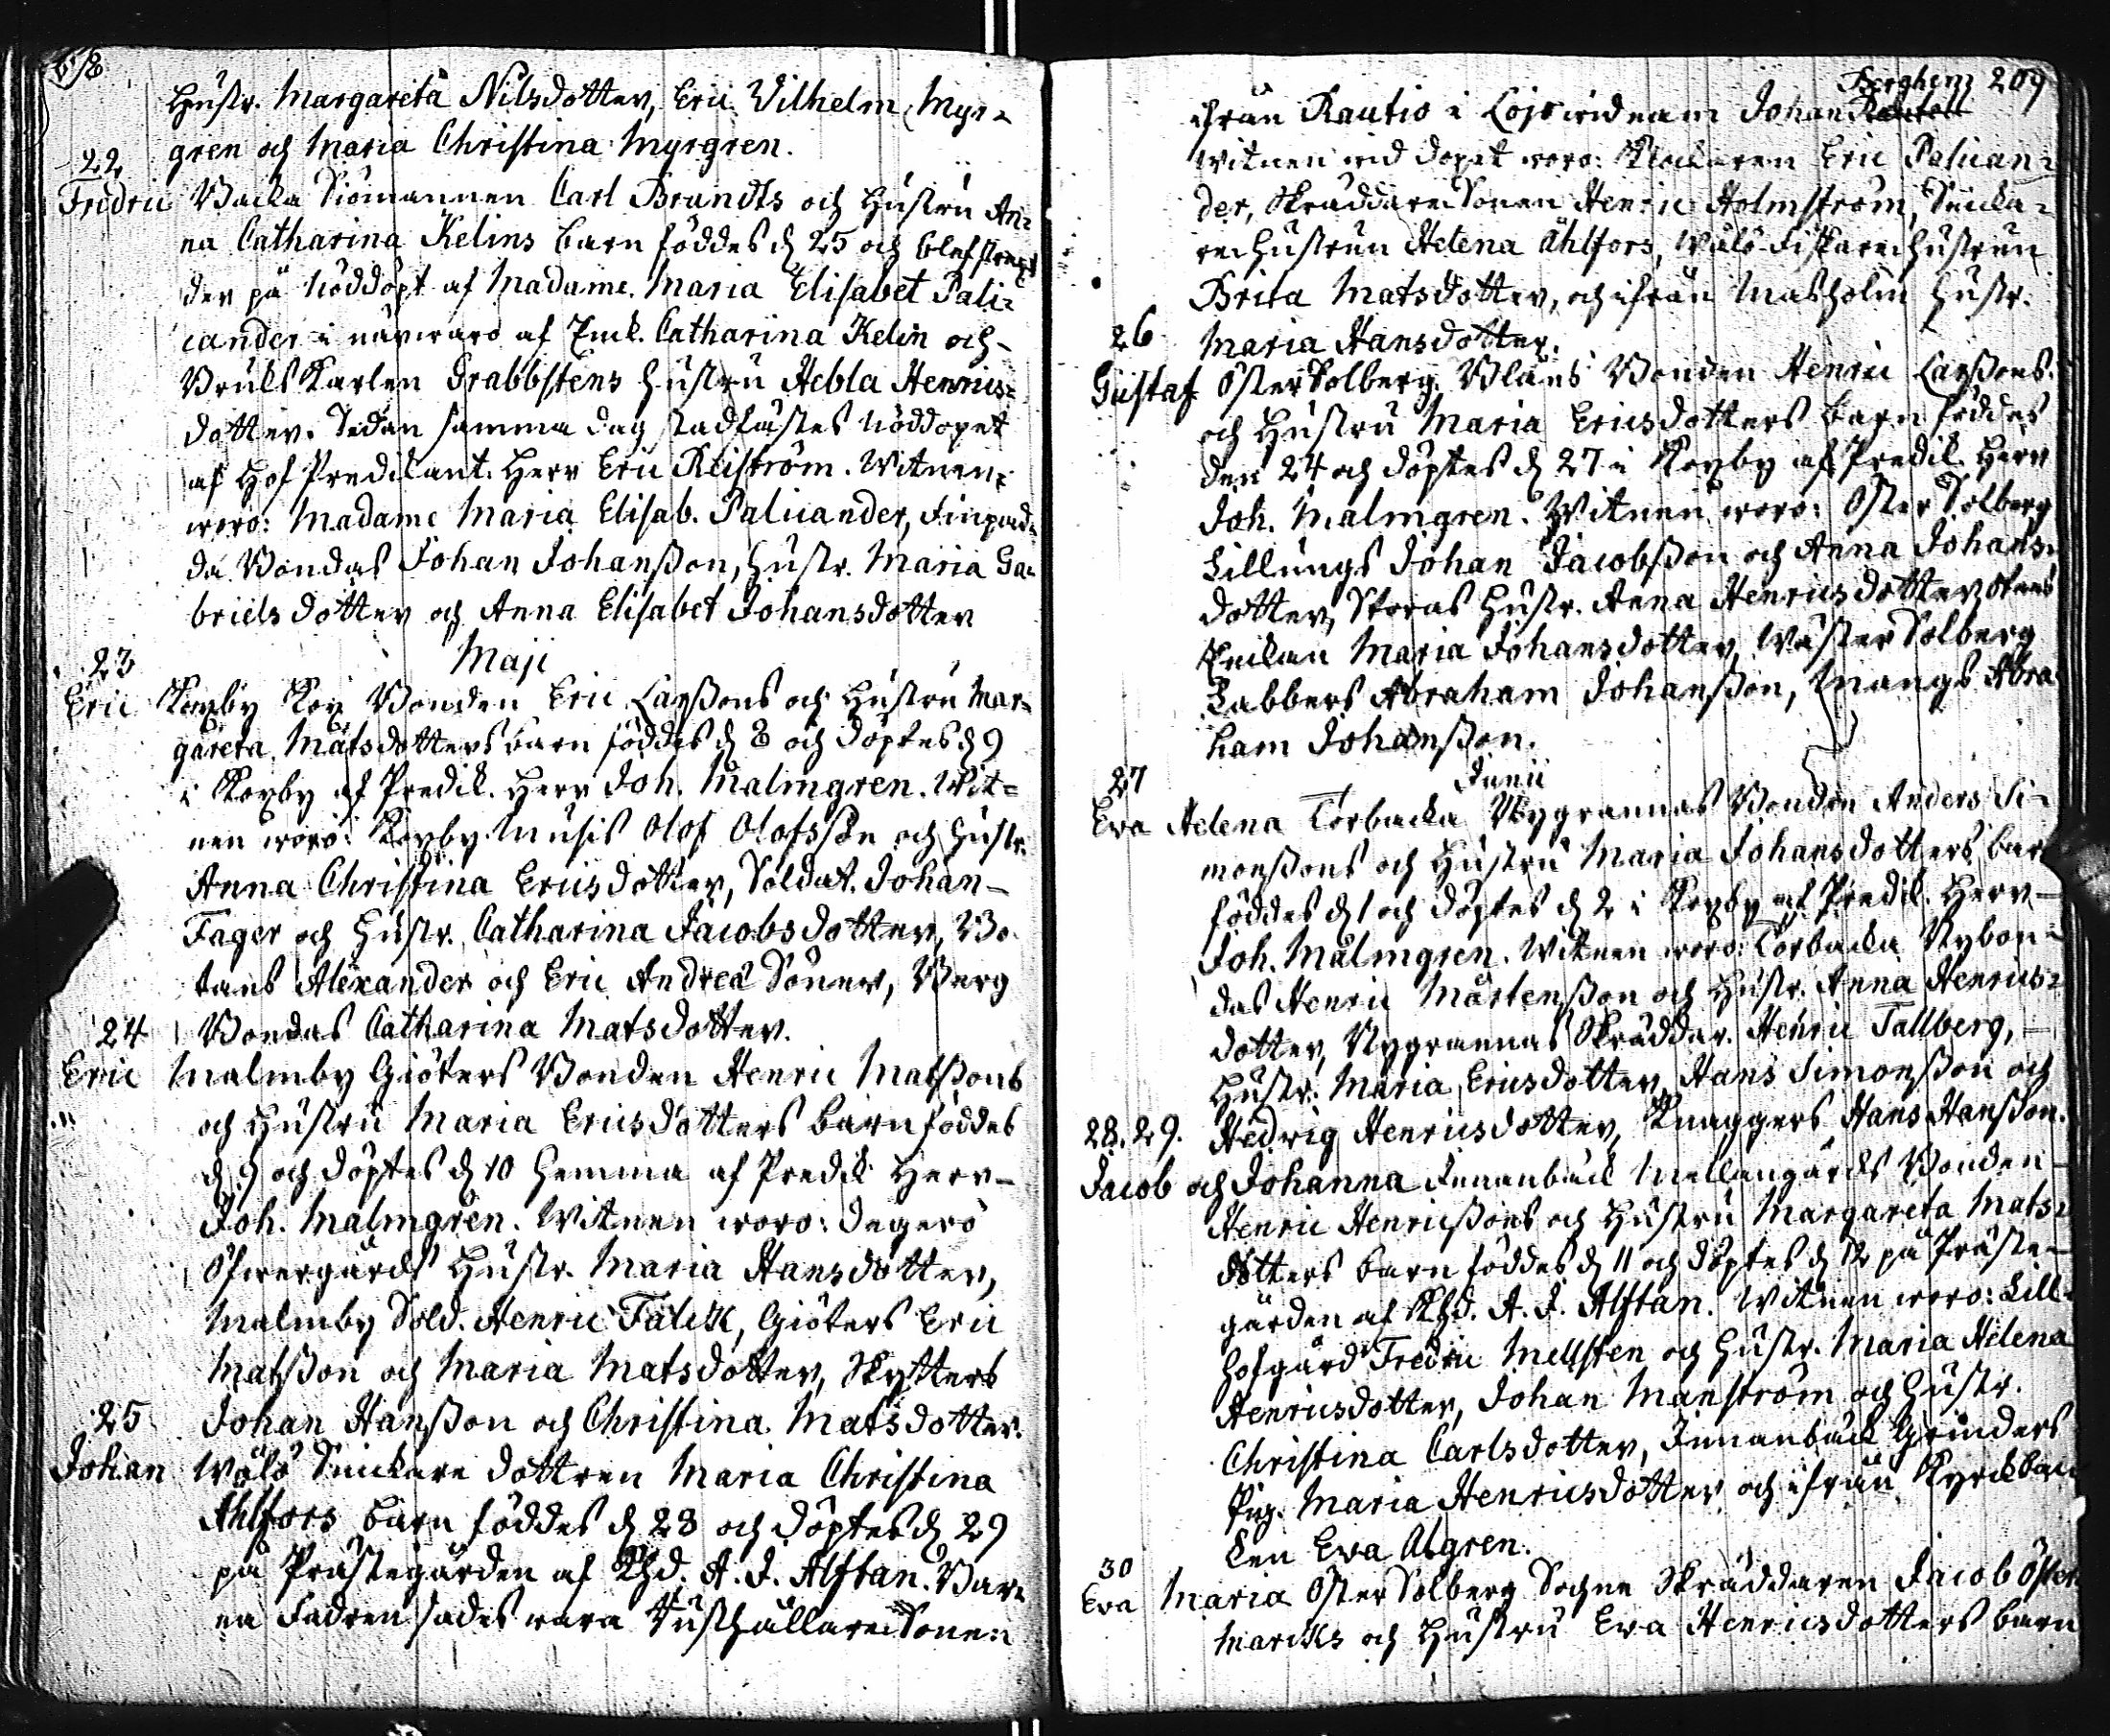 Hustr. Margareta Nilsdotter, Eric Vilhelm Myr=
gren och Maria Christina Myrgren.
22
Fredric Backa Siömannen Carl Brandts och Hustru An=
na Catharina Kelins barn föddes d 25 och blef strax
der på nöddöpt af Madame. Maria Elisabet Pali=
cander i närwaro af Enck. Catharina Kelin och
Bruks Karlen Grabbstens hustru Hebla Henrics=
dotter. Sedan samma dag stadfästes nöddopet
af Hof Predikant. Herr Eric Reiström. Witnen
woro: Madame Maria Elisab. Palicander,
da Bondas Johan Johansson, hustr. Maria Ga=
briels dotter och Anna Elisabet Johansdotter
Maji
23
Eric Köxby Bonden Eric Larssons och Hustru Mar=
gareta Matsdotters barn föddes d 8 och döptes d 9
i af Predik. Herr Joh. Malmgren. Wit=
nen woro: Musis Olof Olofsson och hustr.
Anna Christina Ericsdotter, Soldat. Johan
Fager och Hustr. Catharina Jacobsdotter, Bo
tans Alexander och Eric Andreæ Söner, Berg
Bondas Catharina Matsdotter.
24
Eric Malmby Giöters Bonden Henric Matssons
och Hustru Maria Ericsdotters barn föddes
d 9 och döptes d 10 hemma af Predik Herr
Joh. Malmgren. Witnen woro: Degerö
Öfwergårds Hustr. Maria Hansdotter,
Malmby Sold. Henric Falck, Giöters Eric
Matsson och Maria Matsdotter, Skytters
Johan Hansson och Christina Matsdotter.
25
Johan Wålö Snickare dottren Maria Christina
Ahlfors barn föddes d 28 och döptes d 29
på Prästegården af A. J. Alftan. Bar=
na Fadren sades wara Rusthållare Sonen
Berghem 209
ifrån Rautio i Lojo wid namn Johan
Witnen wid dopet woro: Klockaren Eric Palican=
der, Skräddare Sonen Henric Holmström, Snicka=
re hustrun Helena Ahlfors, Wålö Fiskare hustrun
Brita Matsdotter, och ifrån Matsholm hustr.
Maria Hansdotter.
26
Gustaf Öster Solberg Bonden Henric Larssons
och Hustru Maria Ericsdotters barn föddes
den 24 och döptes d 27 i af Predik. Herr
Joh. Malmgren. Witnen woro: Öster Solberg
Lillungs Johan Jacobsson och Anna Johans=
dotter, Storas Hustr. Anna Henricsdotter
Maria Johansdotter, Wäster Solberg
Labbers Abraham Johansson, Mangs Abra
ham Johansson.
Junii
27
Ewa Helena Torbacka Nygrannas Bonden Anders Si=
monssons och Hustru Maria Johansdotters barn
föddes d 1 och döptes d 2 i af Predik. Herr
Joh. Malmgren. Witnen woro: Torbacka Nybon=
das Henric Mårtensson och Hustr. Anna Henrics=
dotter, Nygrannas Skräddar. Henric Tallberg,
Hustr. Maria Ericsdotter, Hans Simonsson och
Hedwig Henricsdotter, Knaggers Hans Hansson.
28. 29.
Jacob och Johanna Innanbäck Mellangårds Bonden
Henric Henricssons och Hustru Margareta Mats=
dotters barn föddes d 11 och döptes d 12 på Präste=
gården af A. J. Alftan. Witnen woro: Lill
hofgård Fredric Mellsten och hustr. Maria Helena
Henricsdotter, Johan Manström och hustr.
Christina Carlsdotter, Innanbäck Grinders
Pig. Maria Henricsdotter och ifrån Kyrckbac
ken Ewa Algren.
30
Ewa Maria Öster Solberg Sockne Skräddaren Jacob Öster
marcks och Hustru Ewa Henricsdotters barn